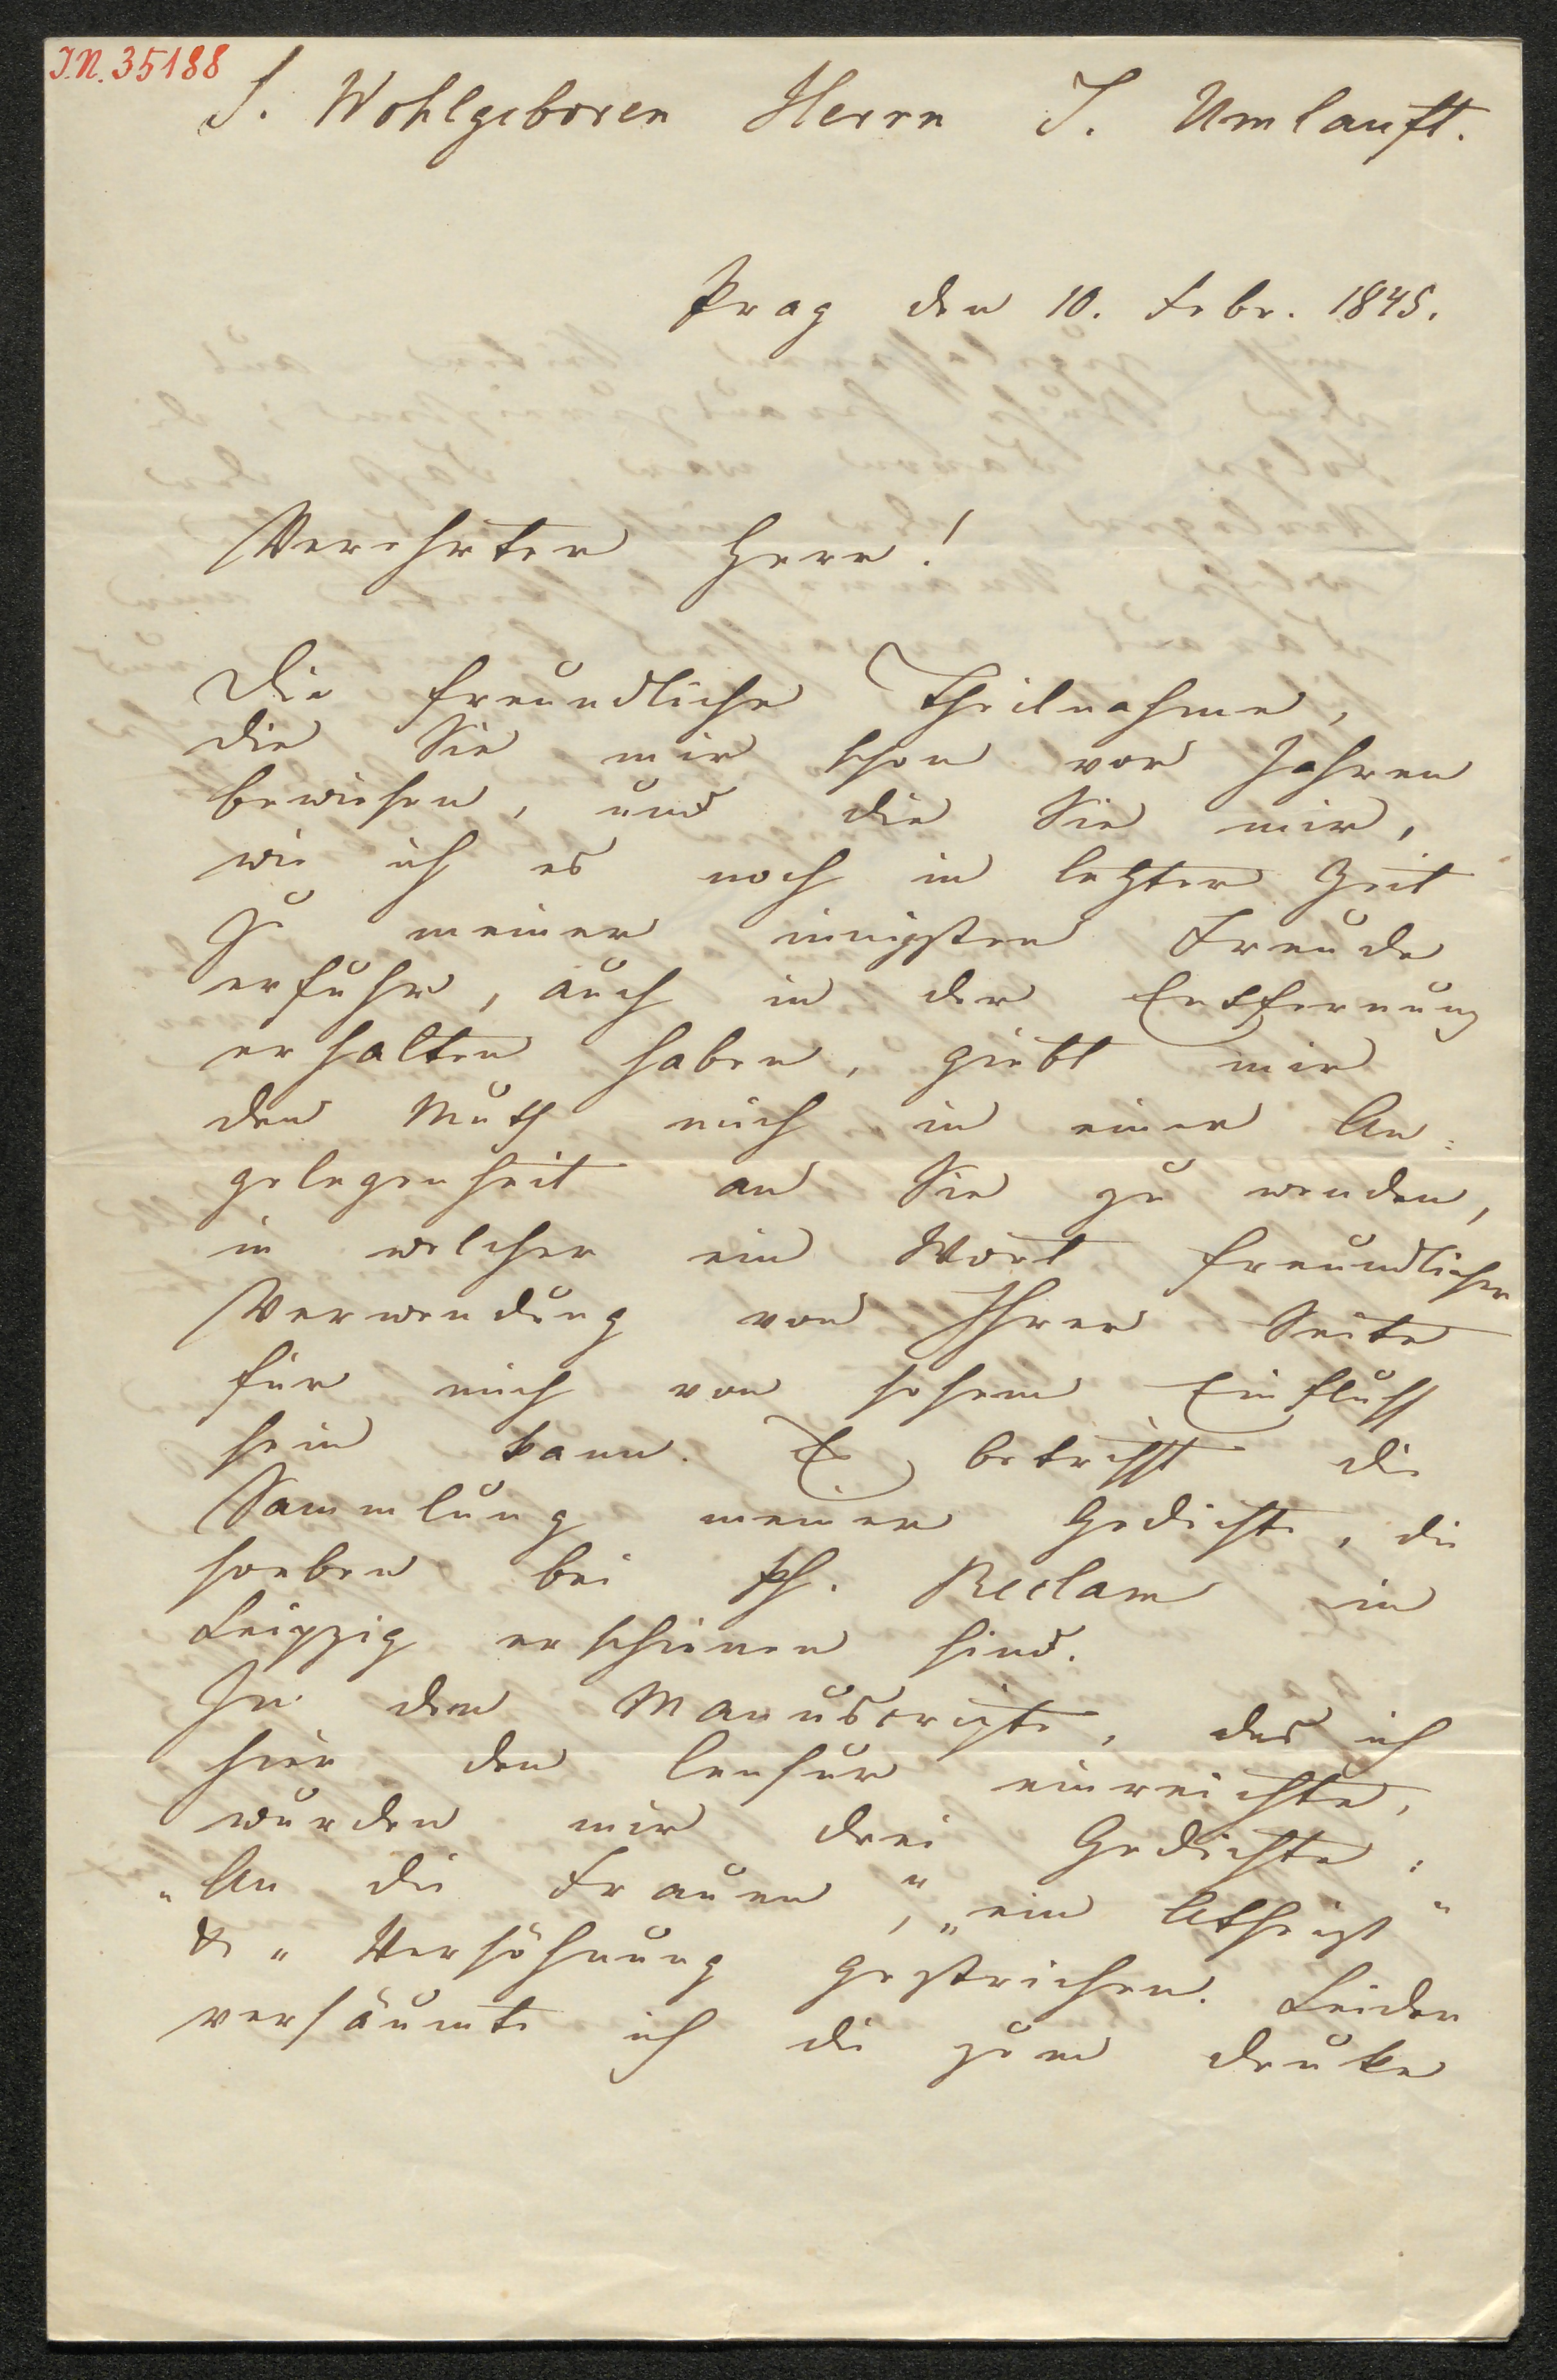 I.N. 35188
S. Wohlgeboren Herrn J. Umlauft.
Prag den 10. Febr. 1845.
Verehrter Herr!
Die freundliche Theilnahme,
die Sie mir schon vor Jahren
bewiesen, und die Sie mir,
wie ich es noch in letzter Zeit
zu meiner innigsten Freude
erfuhr, auch in der Entfernung
erhalten haben, giebt mir
den Muth mich in einer An=
gelegenheit an Sie zu wenden,
in welcher ein Wort freundlicher
Verwendung von Ihrer Seite
für mich von hohem Einfluss
sein kann. Es betrifft die
Sammlung meiner Gedichte, die
soeben bei Ph. Reclam in
Leipzig erschienen sind.
In dem Manuscripte, das ich
hier der Censur einreichte,
wurden mir drei Gedichte:
„An die Frauen", „ein Atheist"
& „Versöhnung gestrichen. Leider
versäumte ich die zum Drucke